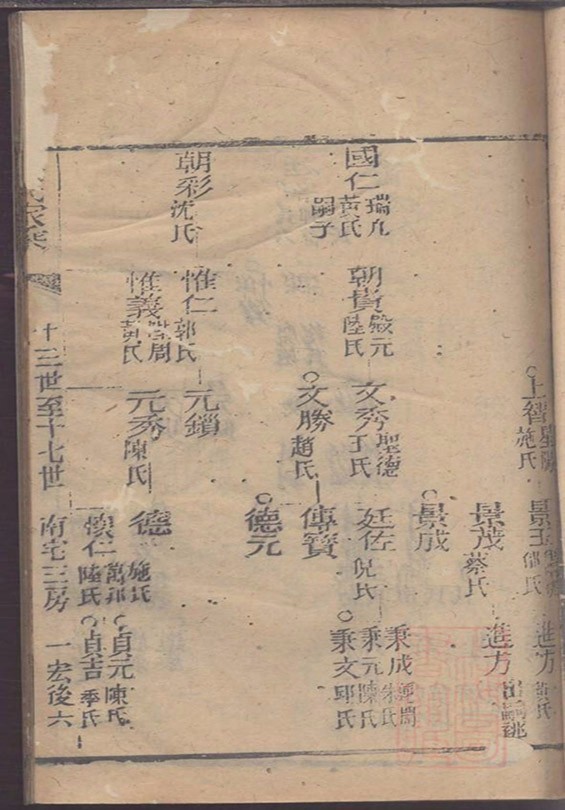 上智
施氏
景玉
邰氏
進方
黃氏
景茂
蔡氏
進方
出嗣
景成
國仁
瑞凡
黃氏
嗣子
朝貴
殿元
陸氏
文秀
聖德
丁氏
廷佐
倪氏
秉成
朱氏
秉元
陳氏
秉文
邱氏
文勝
趙氏
傳寶
德元
朝彩
沈氏
惟仁
郭氏
元鎖
惟義
周
黃氏
元秀
陳氏
德
施氏
貞元
陳氏
懷仁
萬邦
陸氏
貞吉
季氏
十三世至十七世
南宅三房
一宏後六